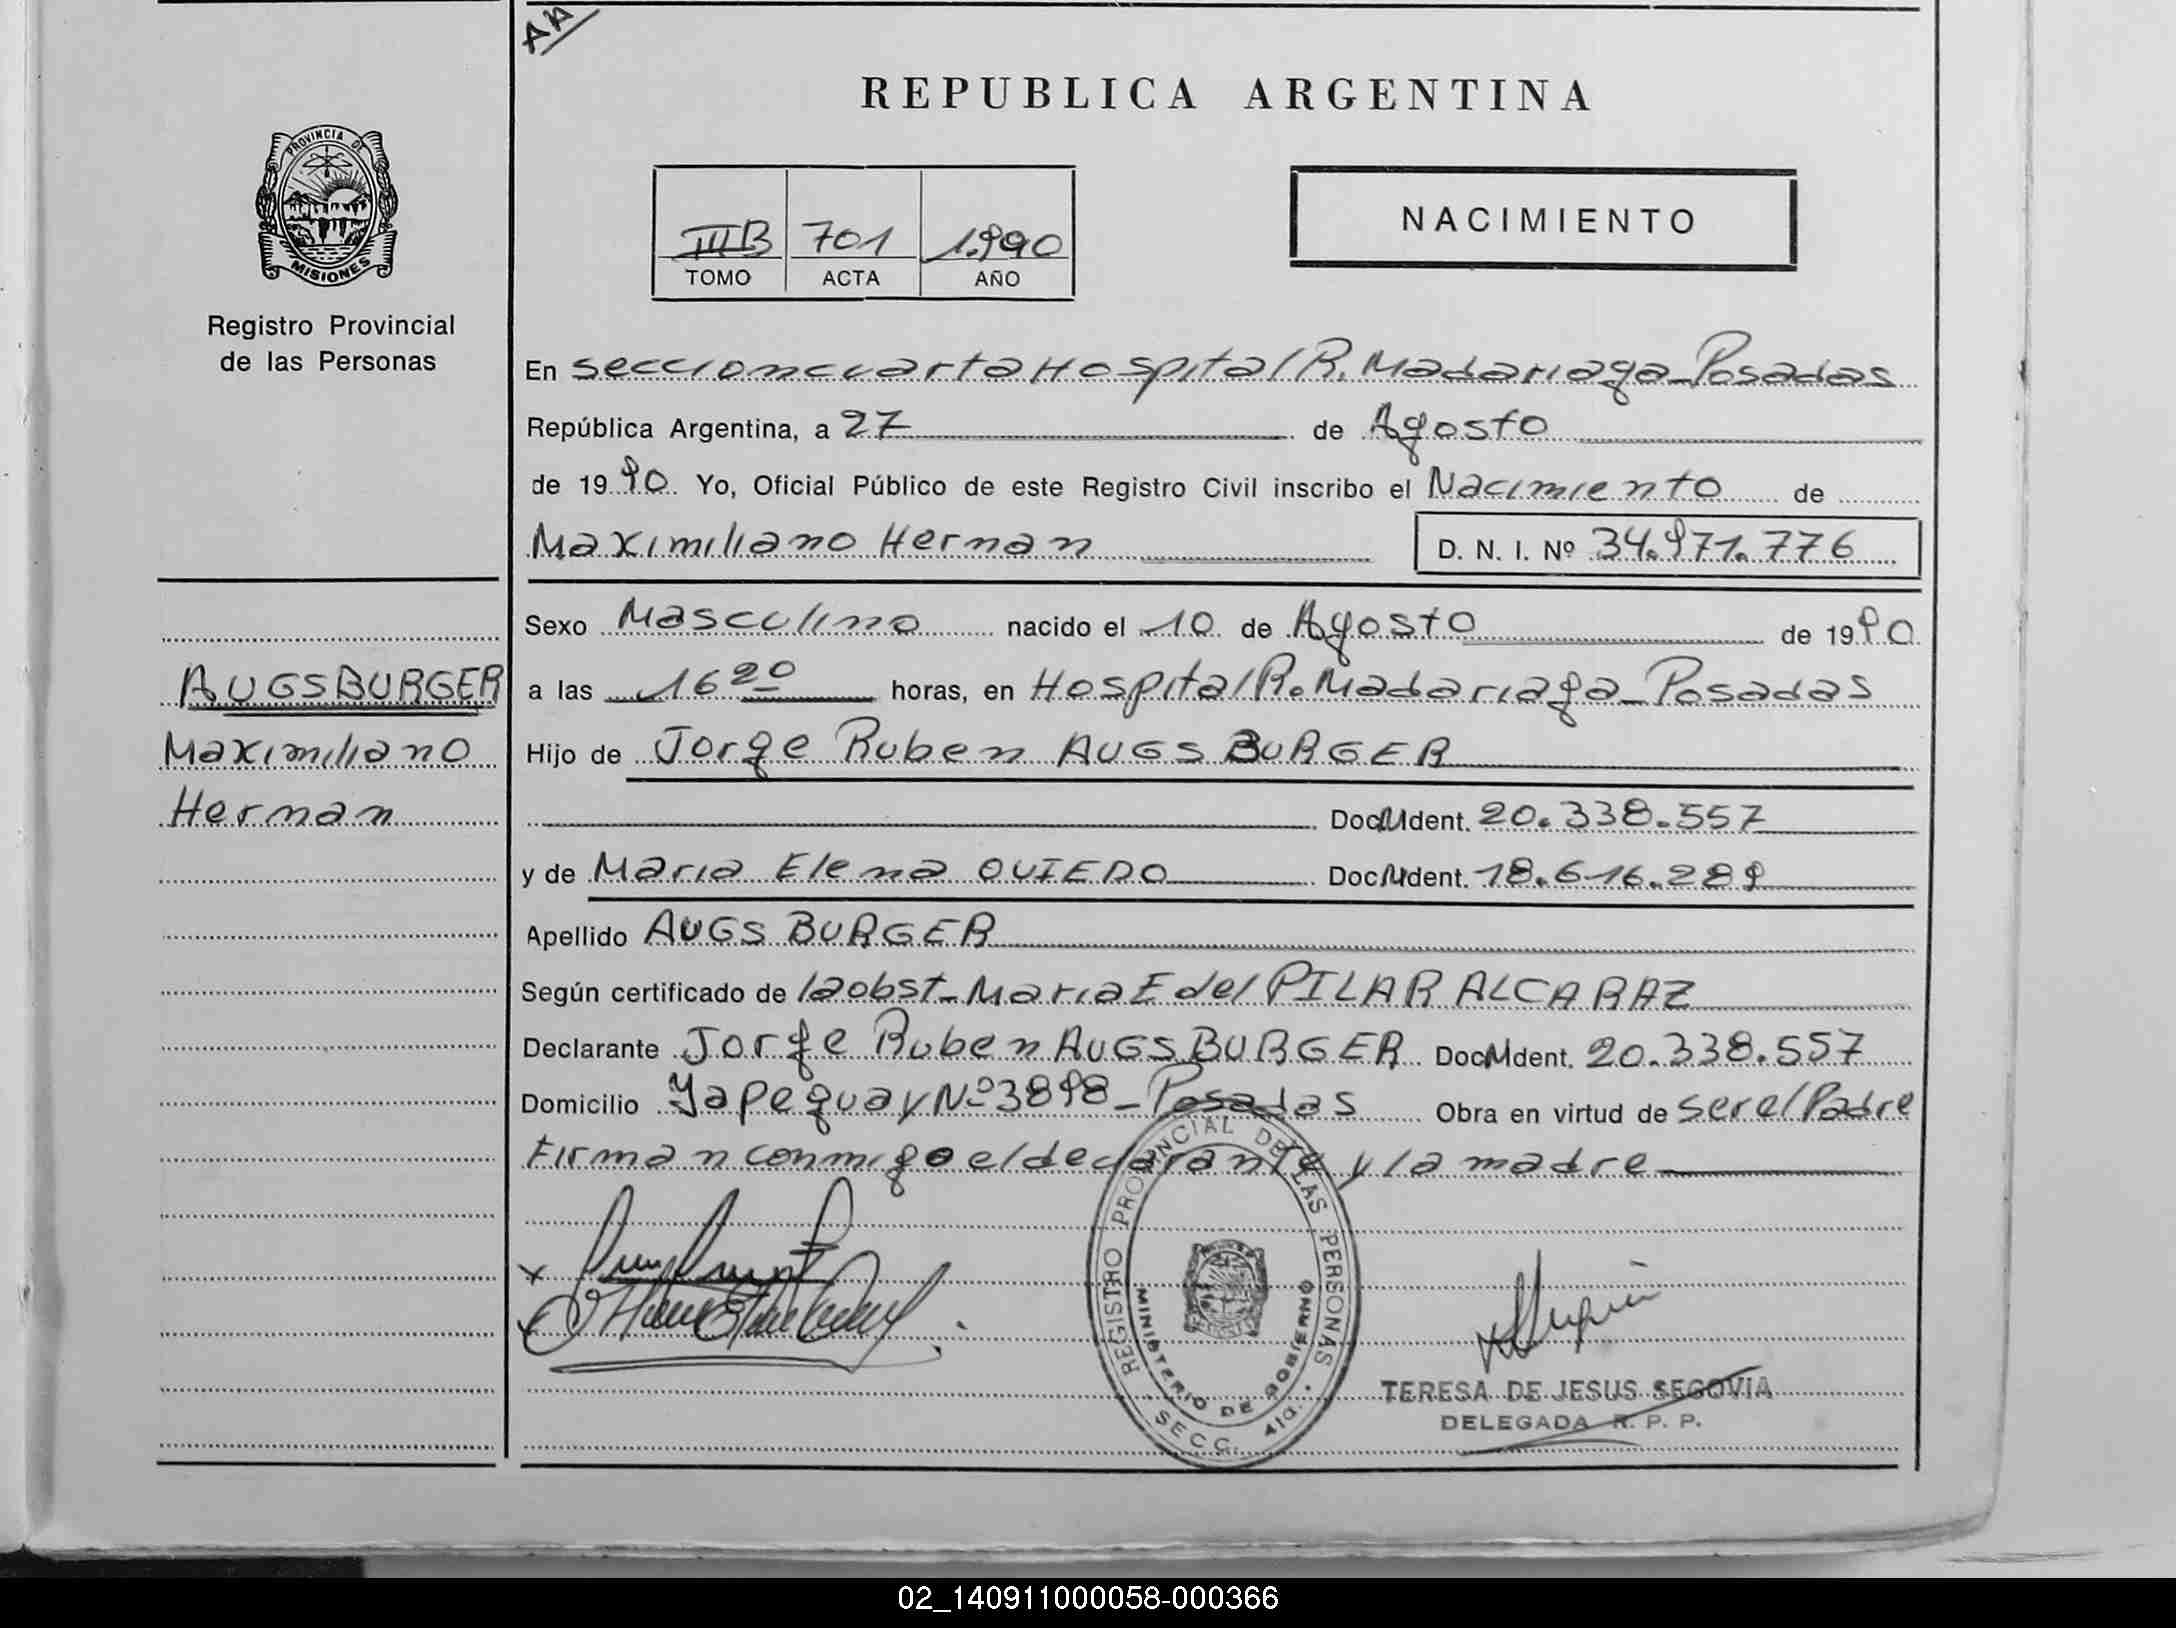 AA
PROVINCIA DE
MISIONES
Registro Provincial
de las Personas
AUGSBURGER
Maximiliano
Hernan
REPUBLICA ARGENTINA
IIIB 701 1.990
TOMO ACTA AÑO
NACIMIENTO
En seccion cuarta Hospital R. Madariaga - Posadas
República Argentina, a 27 de Agosto
de 1990. Yo, Oficial Público de este Registro Civil inscribo el Nacimiento de
Maximiliano Hernan D. N. I. Nº 34.971.776
Sexo Masculino nacido el 10 de Agosto de 1990
a las 16 20 horas, en Hospital R. Madariaga - Posadas
Hijo de Jorge Ruben AUGSBURGER
Doc. Ident. 20.338.557
y de Maria Elena OVIEDO Doc. Ident. 18.616.289
Apellido AUGSBURGER
Según certificado de la obst. Maria E del PILAR ALCARAZ
Declarante Jorge Ruben AUGSBURGER Doc. Ident. 20.338.557
Domicilio Yapeguay Nº 3898 - Posadas Obra en virtud de ser el Padre
Firman conmigo el declarante y la madre
REGISTRO PROVINCIAL DE LAS PERSONAS
MINISTERIO DE GOBIERNO
SECC. 4ta.
TERESA DE JESUS SEGOVIA
DELEGADA R. P. P.
02_140911000058-000366